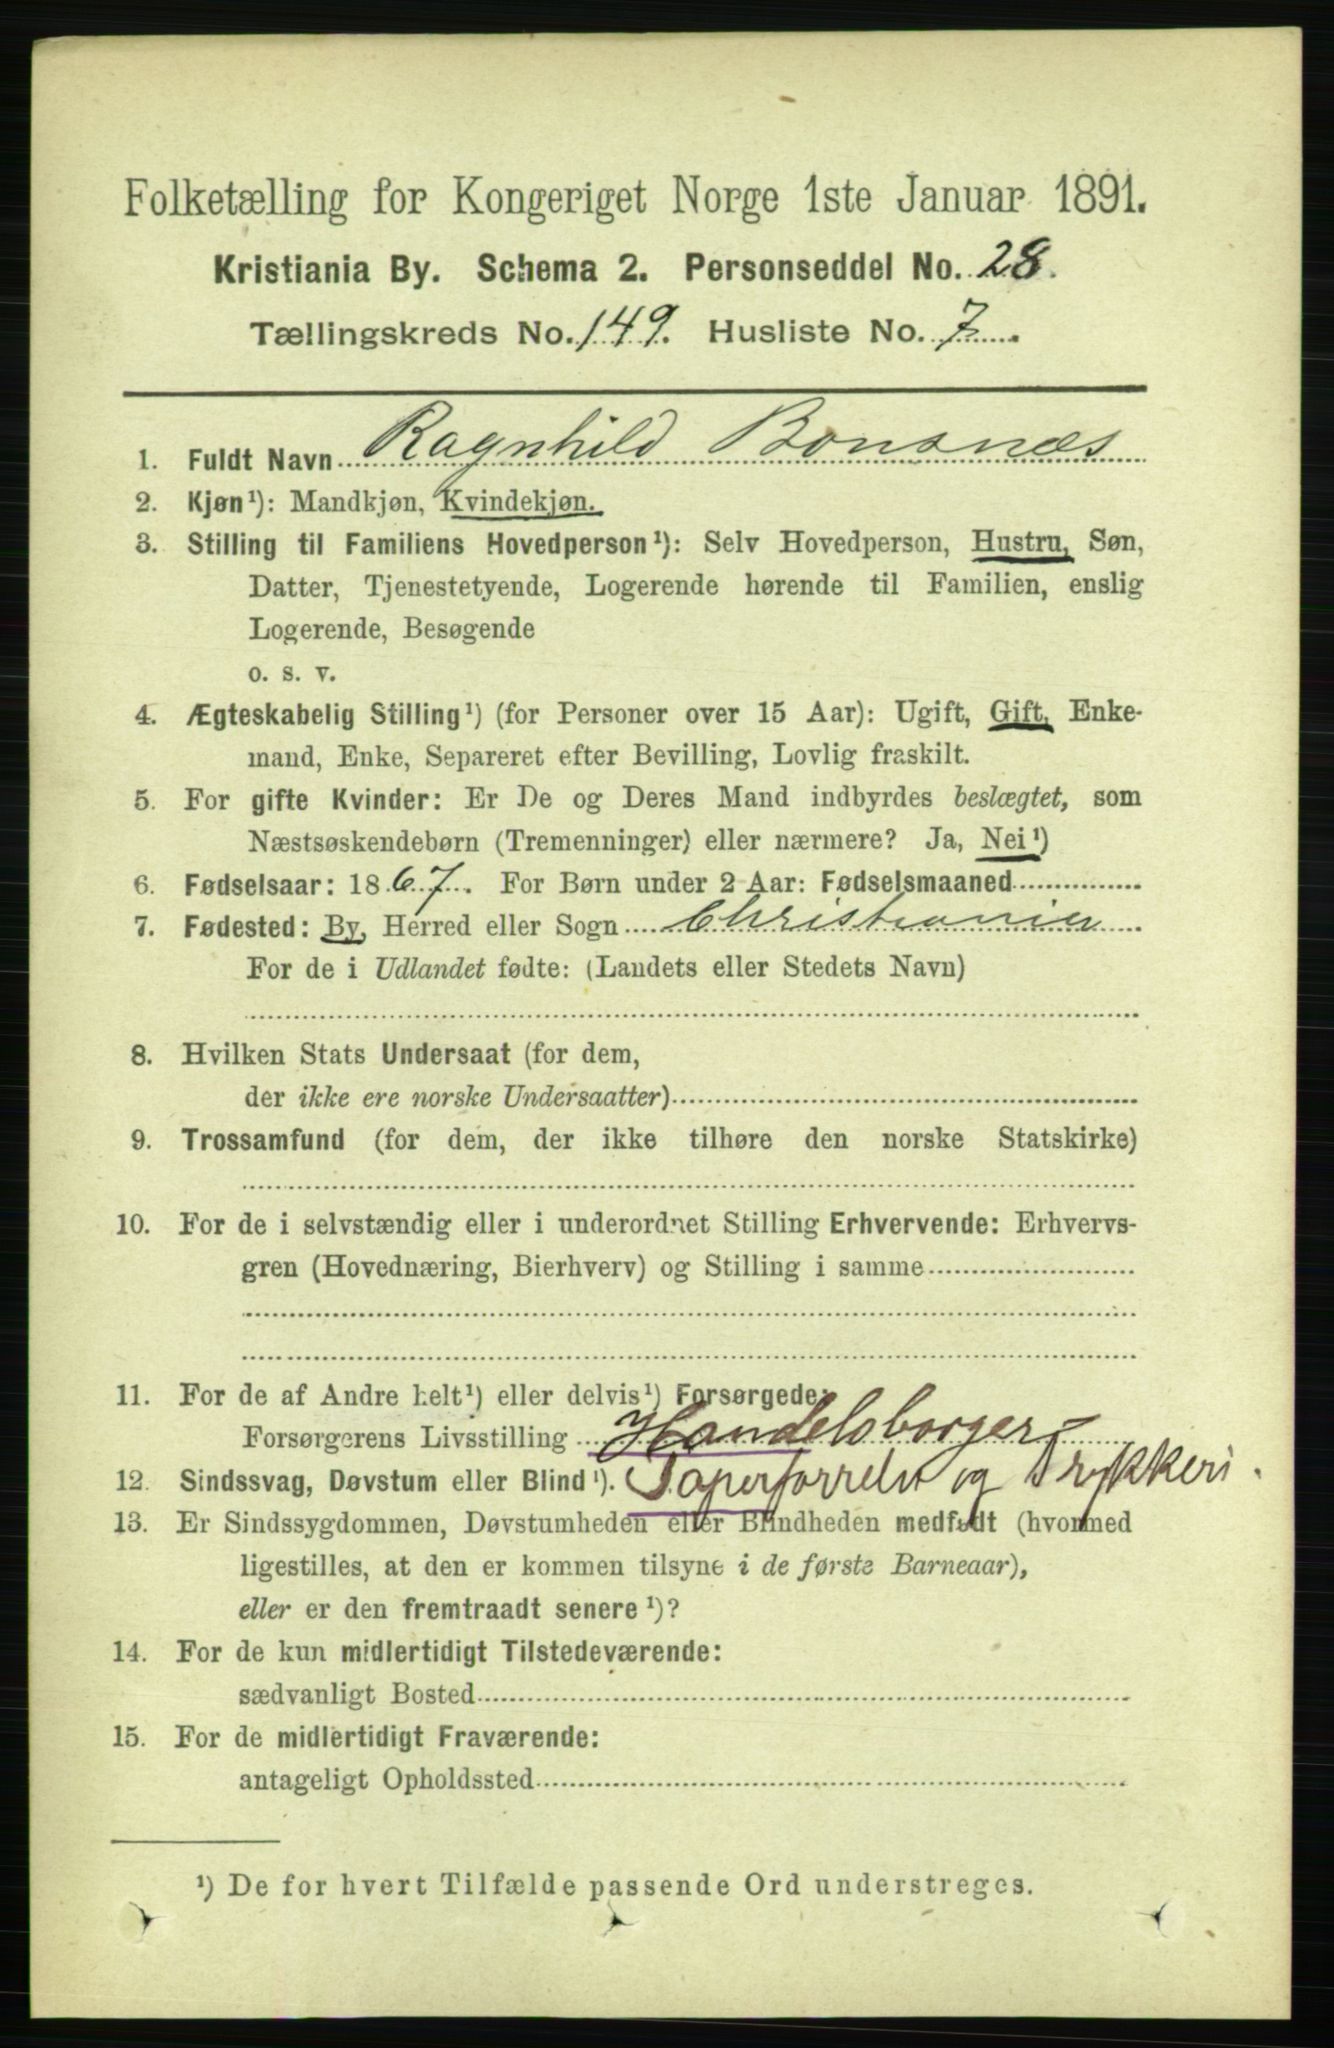 Folketælling for Kongeriget Norge 1ste Januar 1891.
Kristiania By. Schema 2. Personseddel No. 28.
Tællingskreds No. 149. Husliste No. 7
1. Fuldt Navn Ragnhild Bonsnæs
2. Kjøn¹): Mandkjøn, Kvindekjøn.
3. Stilling til Familiens Hovedperson¹): Selv Hovedperson, Hustru, Søn,
Datter, Tjenestetyende, Logerende hørende til Familien, enslig
Logerende, Besøgende
o. s. v.
4. Ægteskabelig Stilling¹) (for Personer over 15 Aar): Ugift, Gift, Enke-
mand, Enke, Separeret efter Bevilling, Lovlig fraskilt.
5. For gifte Kvinder: Er De og Deres Mand indbyrdes beslægtet, som
Næstsøskendebørn (Tremenninger) eller nærmere? Ja, Nei¹)
6. Fødselsaar: 1867. For Børn under 2 Aar: Fødselsmaaned
7. Fødested: By, Herred eller Sogn Christiania
For de i Udlandet fødte: (Landets eller Stedets Navn)
8. Hvilken Stats Undersaat (for dem,
der ikke ere norske Undersaatter)
9. Trossamfund (for dem, der ikke tilhøre den norske Statskirke)
10. For de i selvstændig eller i underordnet Stilling Erhvervende: Erhvervs-
gren (Hovednæring, Bierhverv) og Stilling i samme
11. For de af Andre helt¹) eller delvis¹) Forsørgede:
Forsørgerens Livsstilling Handelsborger
12. Sindssvag, Døvstum eller Blind¹). og Trykkeri.
13. Er Sindssygdommen, Døvstumheden eller Blindheden medfødt (hvormed
ligestilles, at den er kommen tilsyne i de første Barneaar),
eller er den fremtraadt senere¹)?
14. For de kun midlertidigt Tilstedeværende:
sædvanligt Bosted
15. For de midlertidigt Fraværende:
antageligt Opholdssted
¹) De for hvert Tilfælde passende Ord understreges.